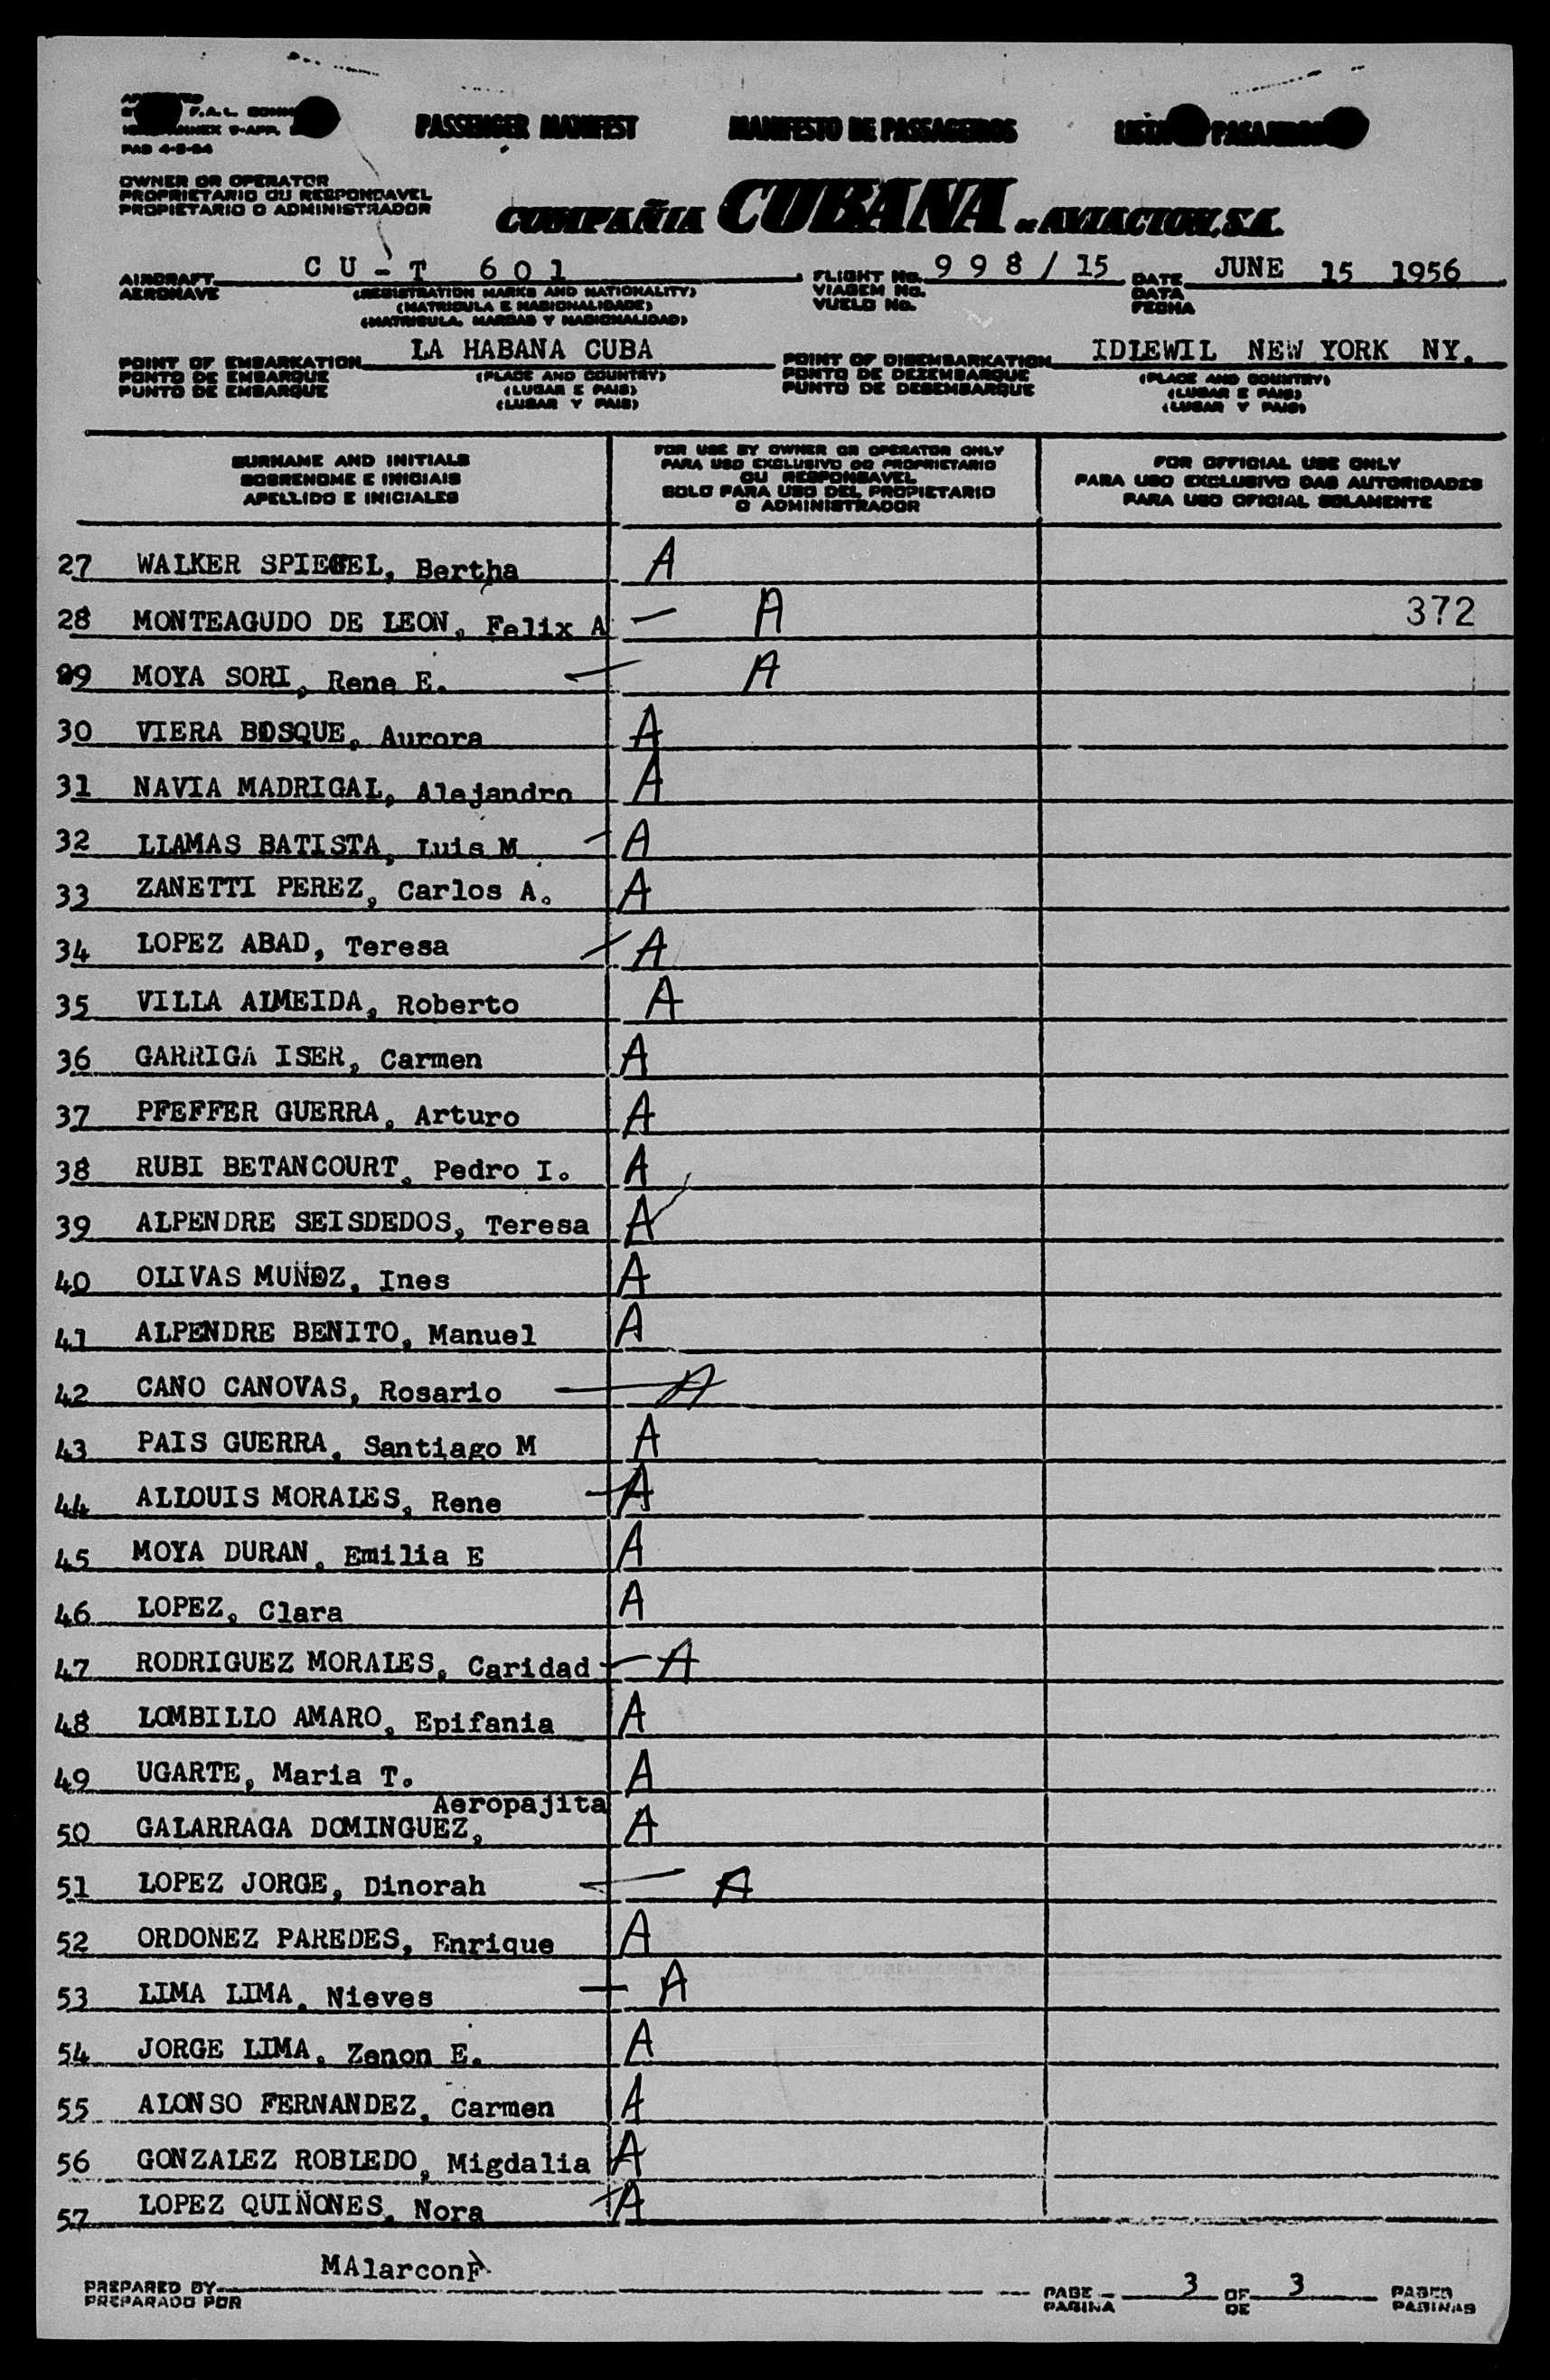 PASSENGER MANIFEST MANIFESTO DE PASSAGEIROS
PAB 4-5-54
OWNER OR OPERATOR
PROPRIETARIO OU RESPONDAVEL
PROPIETARIO O ADMINISTRADOR
COMPAÑIA CUBANA DE AVIACION, S.A.
AIRCRAFT CU-T 601 FLIGHT No. 998/15 DATE JUNE 15 1956
AERONAVE (REGISTRATION MARKS AND NATIONALITY) VIAGEM No. DATA
(MATRICULA E NACIONALIDADE) VUELO No. FECHA
(MATRICULA, MARCAS Y NACIONALIDAD)
POINT OF EMBARKATION LA HABANA CUBA POINT OF DISEMBARKATION IDLEWIL NEW YORK NY.
PONTO DE EMBARQUE (PLACE AND COUNTRY) PONTO DE DEZEMBARQUE (PLACE AND COUNTRY)
PUNTO DE EMBARQUE (LUGAR E PAIS) PUNTO DE DESEMBARQUE (LUGAR E PAIS)
(LUGAR Y PAIS) (LUGAR Y PAIS)
SURNAME AND INITIALS
SOBRENOME E INICIAIS
APELLIDO E INICIALES
FOR USE BY OWNER OR OPERATOR ONLY
PARA USO EXCLUSIVO DO PROPRIETARIO
OU RESPONSAVEL
SOLO PARA USO DEL PROPIETARIO
O ADMINISTRADOR
FOR OFFICIAL USE ONLY
PARA USO EXCLUSIVO DAS AUTORIDADES
PARA USO OFICIAL SOLAMENTE
27 WALKER SPIEGEL, Bertha A
28 MONTEAGUDO DE LEON, Felix A A 372
29 MOYA SORI, Rene E. A
30 VIERA BOSQUE, Aurora A
31 NAVIA MADRIGAL, Alejandro A
32 LLAMAS BATISTA, Luis M A
33 ZANETTI PEREZ, Carlos A. A
34 LOPEZ ABAD, Teresa A
35 VILLA ALMEIDA, Roberto A
36 GARRIGA ISER, Carmen A
37 PFEFFER GUERRA, Arturo A
38 RUBI BETANCOURT, Pedro I. A
39 ALPENDRE SEISDEDOS, Teresa A
40 OLIVAS MUÑOZ, Ines A
41 ALPENDRE BENITO, Manuel A
42 CANO CANOVAS, Rosario A
43 PAIS GUERRA, Santiago M A
44 ALLOUIS MORALES, Rene A
45 MOYA DURAN, Emilia E A
46 LOPEZ, Clara A
47 RODRIGUEZ MORALES, Caridad A
48 LOMBILLO AMARO, Epifania A
49 UGARTE, Maria T. A
Aeropajita
50 GALARRAGA DOMINGUEZ, A
51 LOPEZ JORGE, Dinorah A
52 ORDONEZ PAREDES, Enrique A
53 LIMA LIMA, Nieves A
54 JORGE LIMA, Zenon E. A
55 ALONSO FERNANDEZ, Carmen A
56 GONZALEZ ROBLEDO, Migdalia A
57 LOPEZ QUIÑONES, Nora A
MAlarconF
PREPARED BY PAGE 3 OF 3 PAGES
PREPARADO POR PAGINA DE PAGINAS